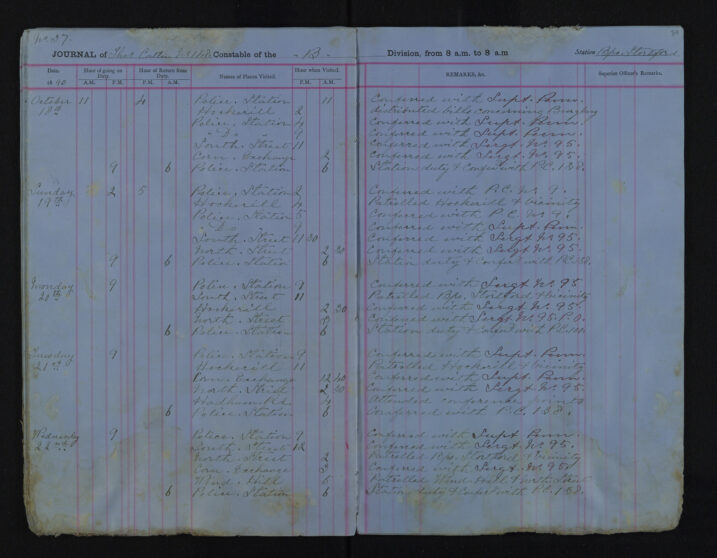 No 27.
JOURNAL of Constable of the B Division, from 8 a.m. to 8 a.m Station Bps. Stortford
Date. Hour of going on Duty. Hour of Return from Duty. Names of Places Visited. Hour when Visited. REMARKS, &c. Superior Officer's Remarks.
1890 A.M. P.M. P.M. A.M. P.M. A.M.
October 11 4 Police. Station 11 Conferred with Supt. Penn.
18th Hockerill 2 distributed bills concerning Burglary
Police. Station 4 Conferred with Supt. Penn.
" Do " 9 Conferred with Supt. Penn.
South. Street 11 Conferred with Sergt. No 95.
Corn. Exchange 2 Conferred with Sergt. No 95.
9 6 Police. Station 6 Station duty & Confer with P.C. 138.
Sunday 2 5 Police. Station 2 Conferred with P.C. No 9.
19th Hockerill 4 Patrolled Hockerill & vicinity
Police. Station 5 Conferred with P.C. No 9.
" Do " 9 Conferred with Supt. Penn.
South. Street 11 30 Conferred with Sergt No 95.
North. Street 2 30 Conferred with Sergt. No 95.
9 6 Police. Station 6 Station duty & Confer with P.C. 138.
Monday 9 Police. Station 9 Conferred with Sergt No 95
20th South. Street 11 Patrolled Bps. Stortford & vicinity
Hockerill 2 30 Conferred with Sergt No 95.
North. Street Conferred with Sergt No 95
6 Police. Station 6 Station duty & Confer with P.C.
Tuesday 9 Police. Station 9 Conferred with Supt. Penn.
21st Hockerill 11 Patrolled Hockerill & vicinity
Corn. Exchange 12 40 Conferred with Supt. Penn.
North. Street 2 30 Conferred with Sergt. No 95.
Hadham. Rd. 4 Attended conference points
6 Police. Station 6 Conferred with P.C. 138.
Wednesday 9 Police. Station 9 Conferred with Supt Penn.
22nd South. Street 12 Conferred with Sergt. No 95.
North. Street 2 Patrolled Bps. Stortford & vicinity
Corn. Exchange 3 Conferred with Sergt. No 95.
Wind. Hill 5 Patrolled Wind. Hill & North Street
6 Police. Station 6 Station duty & Confer with P.C. 138.